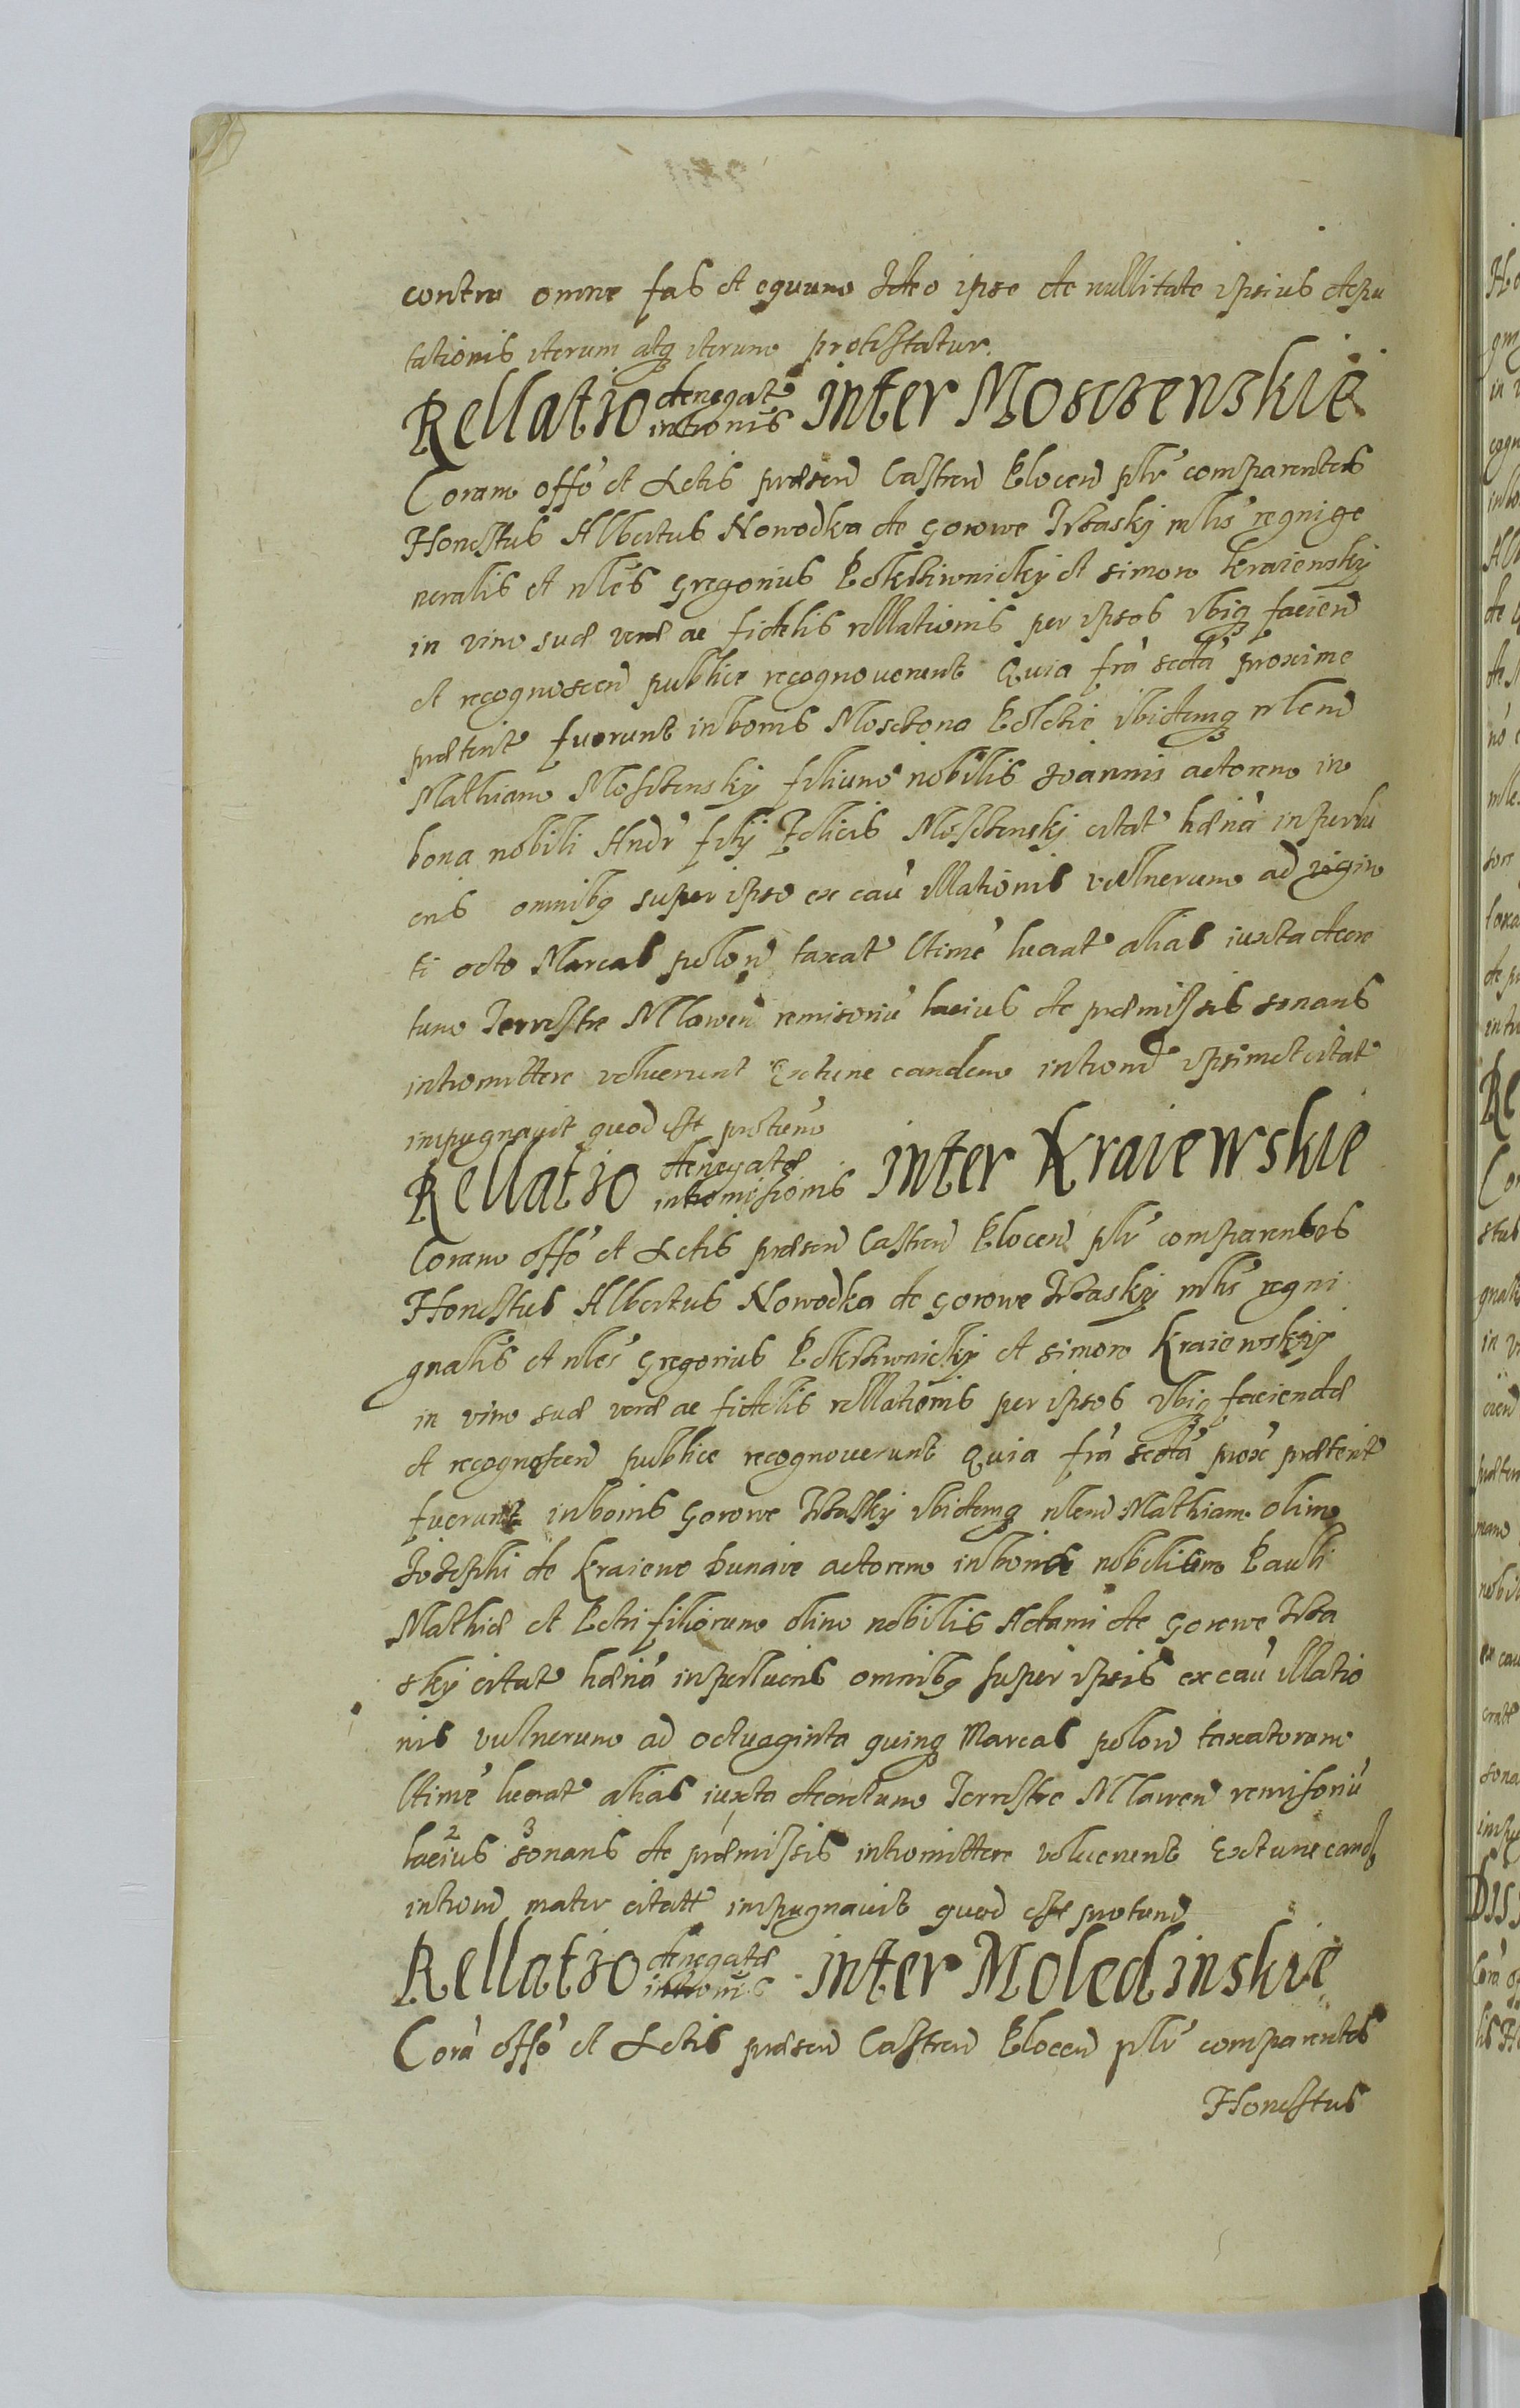 contra omne fas et equum Ideo ipse de nullitate ipsius depu
tationis iterum atq iterum protestatur.
Rellatio denegat intronis inter Mosczenskie
Coram offo et Actis præsen Castren Plocen plr comparentes
Honestus Albertus Nowodka de Gorowe Trzasky mlis regni ge
neralis et nles Gregorius et Simon Kraiewsky
in vim suæ veræ ac fidelis rellationis per ipsos ubiq facien
et recognoscen publice recognoverunt Quia fra secda proxime
præterit fuerunt in bonis Mosczona ibidemq nlem
Mathiam Mosczensky filium nobilis Joannis actorem in
bona nobili Andr filij Felicis Mosczensky citat hæna in per lu
cris omnibq super ipso ex cau illationis vulnerum ad vigin
ti octo Marcas polon taxat ltime lucrat alias iuxta decre
tum Terrestre Mlawen remisoriu lacius de præmissis sonans
intromittere voluerunt Extunc eandem intromi ipsimet citat
impugnavit quod est protum
Rellatio denegatæ intromisionis inter Kraiewskie
Coram offo et Actis præsen Castren Plocen plr comparentes
Honestus Albertus Nowodka de Gorowe Trzasky mlis regni
gnalis et nles Gregorius et Simon Kraiewsky
in vim suæ veræ ac fidelis rellationis per ipsos ubiq faciendæ
et recognoscen publice recognoverunt Quia fra secda prox præterit
fuerunt in bonis Gorowe Trzasky ibidemq nlem Mathiam olim
Josephi de Kraiewo Dunaie actorem in bona nobilium Pauli
Mathiæ et Petri filiorum olim nobilis Adami de Gorowe Trza
sky citat hæna in perlucris omnibq super ipsis ex cau illatio
nis vulnerum ad octuaginta quinq Marcas polon taxatorum
ltime lucrat alias iuxta decretum Terrestre Mlawen remisoriu
lacius 2 sonans 3 de præmissis intromittere voluerunt Extunc eand
intromi mater citatt impugnavit quod est protum
Rellatio denegatæ intronis inter Moledinskie
Cora offo et Actis præsen Castren Plocen plr comparentes
Honestus